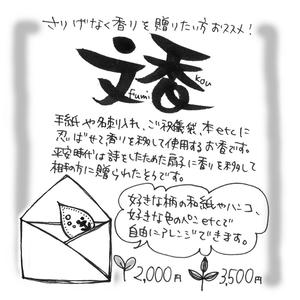 さりげなく香りを贈りたい方おススメ！
文香
fumi kou
手紙や名刺入れ、ご祝儀袋、本etcに
忍ばせて香りを移して使用するお香です。
平安時代は詩をしたためた扇子に香りを移して
相手の方に贈られたそうです。
好きな柄の和紙やハンコ、
好きな色のペンetcで
自由にアレンジできます。
2,000円 3,500円